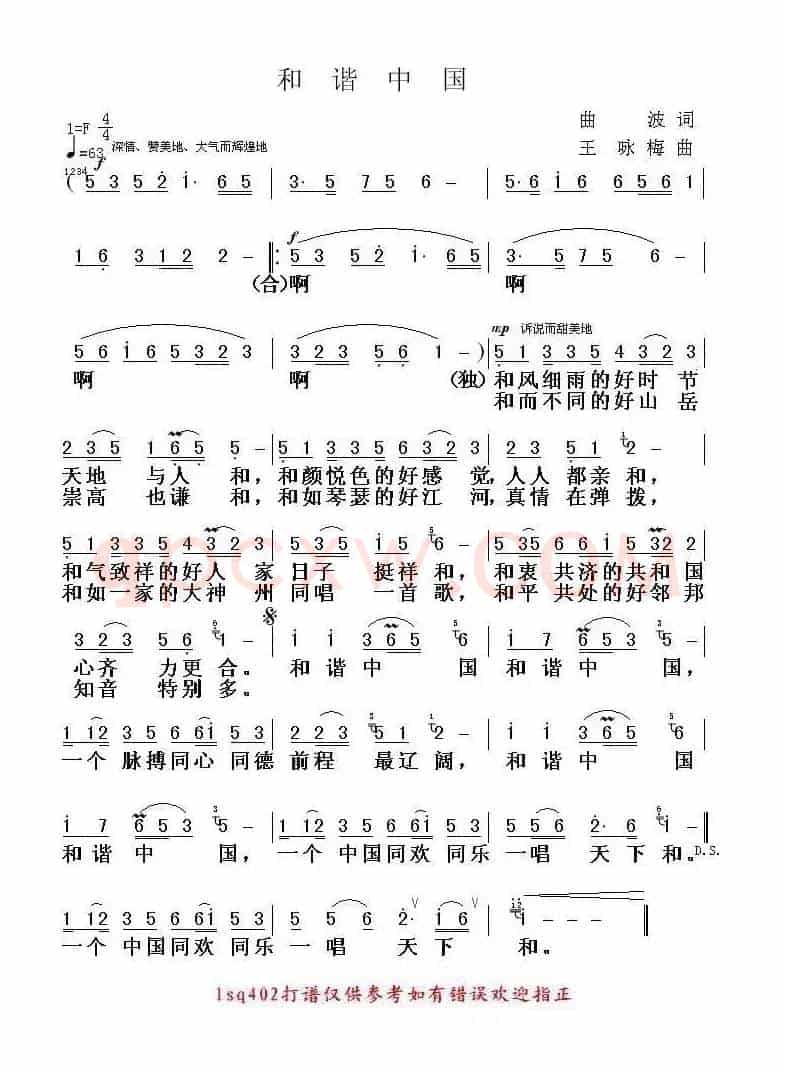 和 谐 中 国
1=F 4/4
曲 波 词
♩=63 深情、赞美地、大气而辉煌地
王 咏 梅 曲
1234 f
( 5 3 5 2 i· 6 5 | 3· 5 7 5 6 - | 5· 6 i 6 5 6 5 6 1 |
1 6 3 1 2 2 - ‖: 5 3 5 2 i· 6 5 | 3· 5 7 5 6 - |
f
(合)啊 啊
5 6 i 6 5 3 2 3 | 3 2 2 3 5 6 1 - ) | 5 1 3 3 5 4 3 2 3 |
mp 诉说而甜美地
啊 啊 (独) 和风细雨的好时 节
和而不同的好山 岳
2 3 5 1 6 5 5 - | 5 1 3 5 5 6 3 2 3 | 2 3 5 5 1 2 - |
天地 与人 和,和颜悦色的好感 觉,人人 都亲 和,
崇高 也谦 和,和如琴瑟的好江 河,真情 在弹 拨,
和气致祥的好人 家 日子 挺祥 和,和衷 共济的共和 国
和如一家的大神 州 同唱 一首 歌,和平 共处的好邻 邦
心齐 力更 合。 和 谐 中 国 和 谐 中 国,
知音 特别 多。
一个 脉搏同心 同德 前程 最辽 阔, 和 谐 中 国
和 谐 中 国,一个 中国同欢 同乐 一唱 天 下 和。D.S.
1 1 2 3 5 6 6 i 5 3 | 5 5 6 2· i 6 | i - - -
一个 中国同欢 同乐 一唱 天 下 和。
gpcxw.COM
lsq402打谱仅供参考如有错误欢迎指正